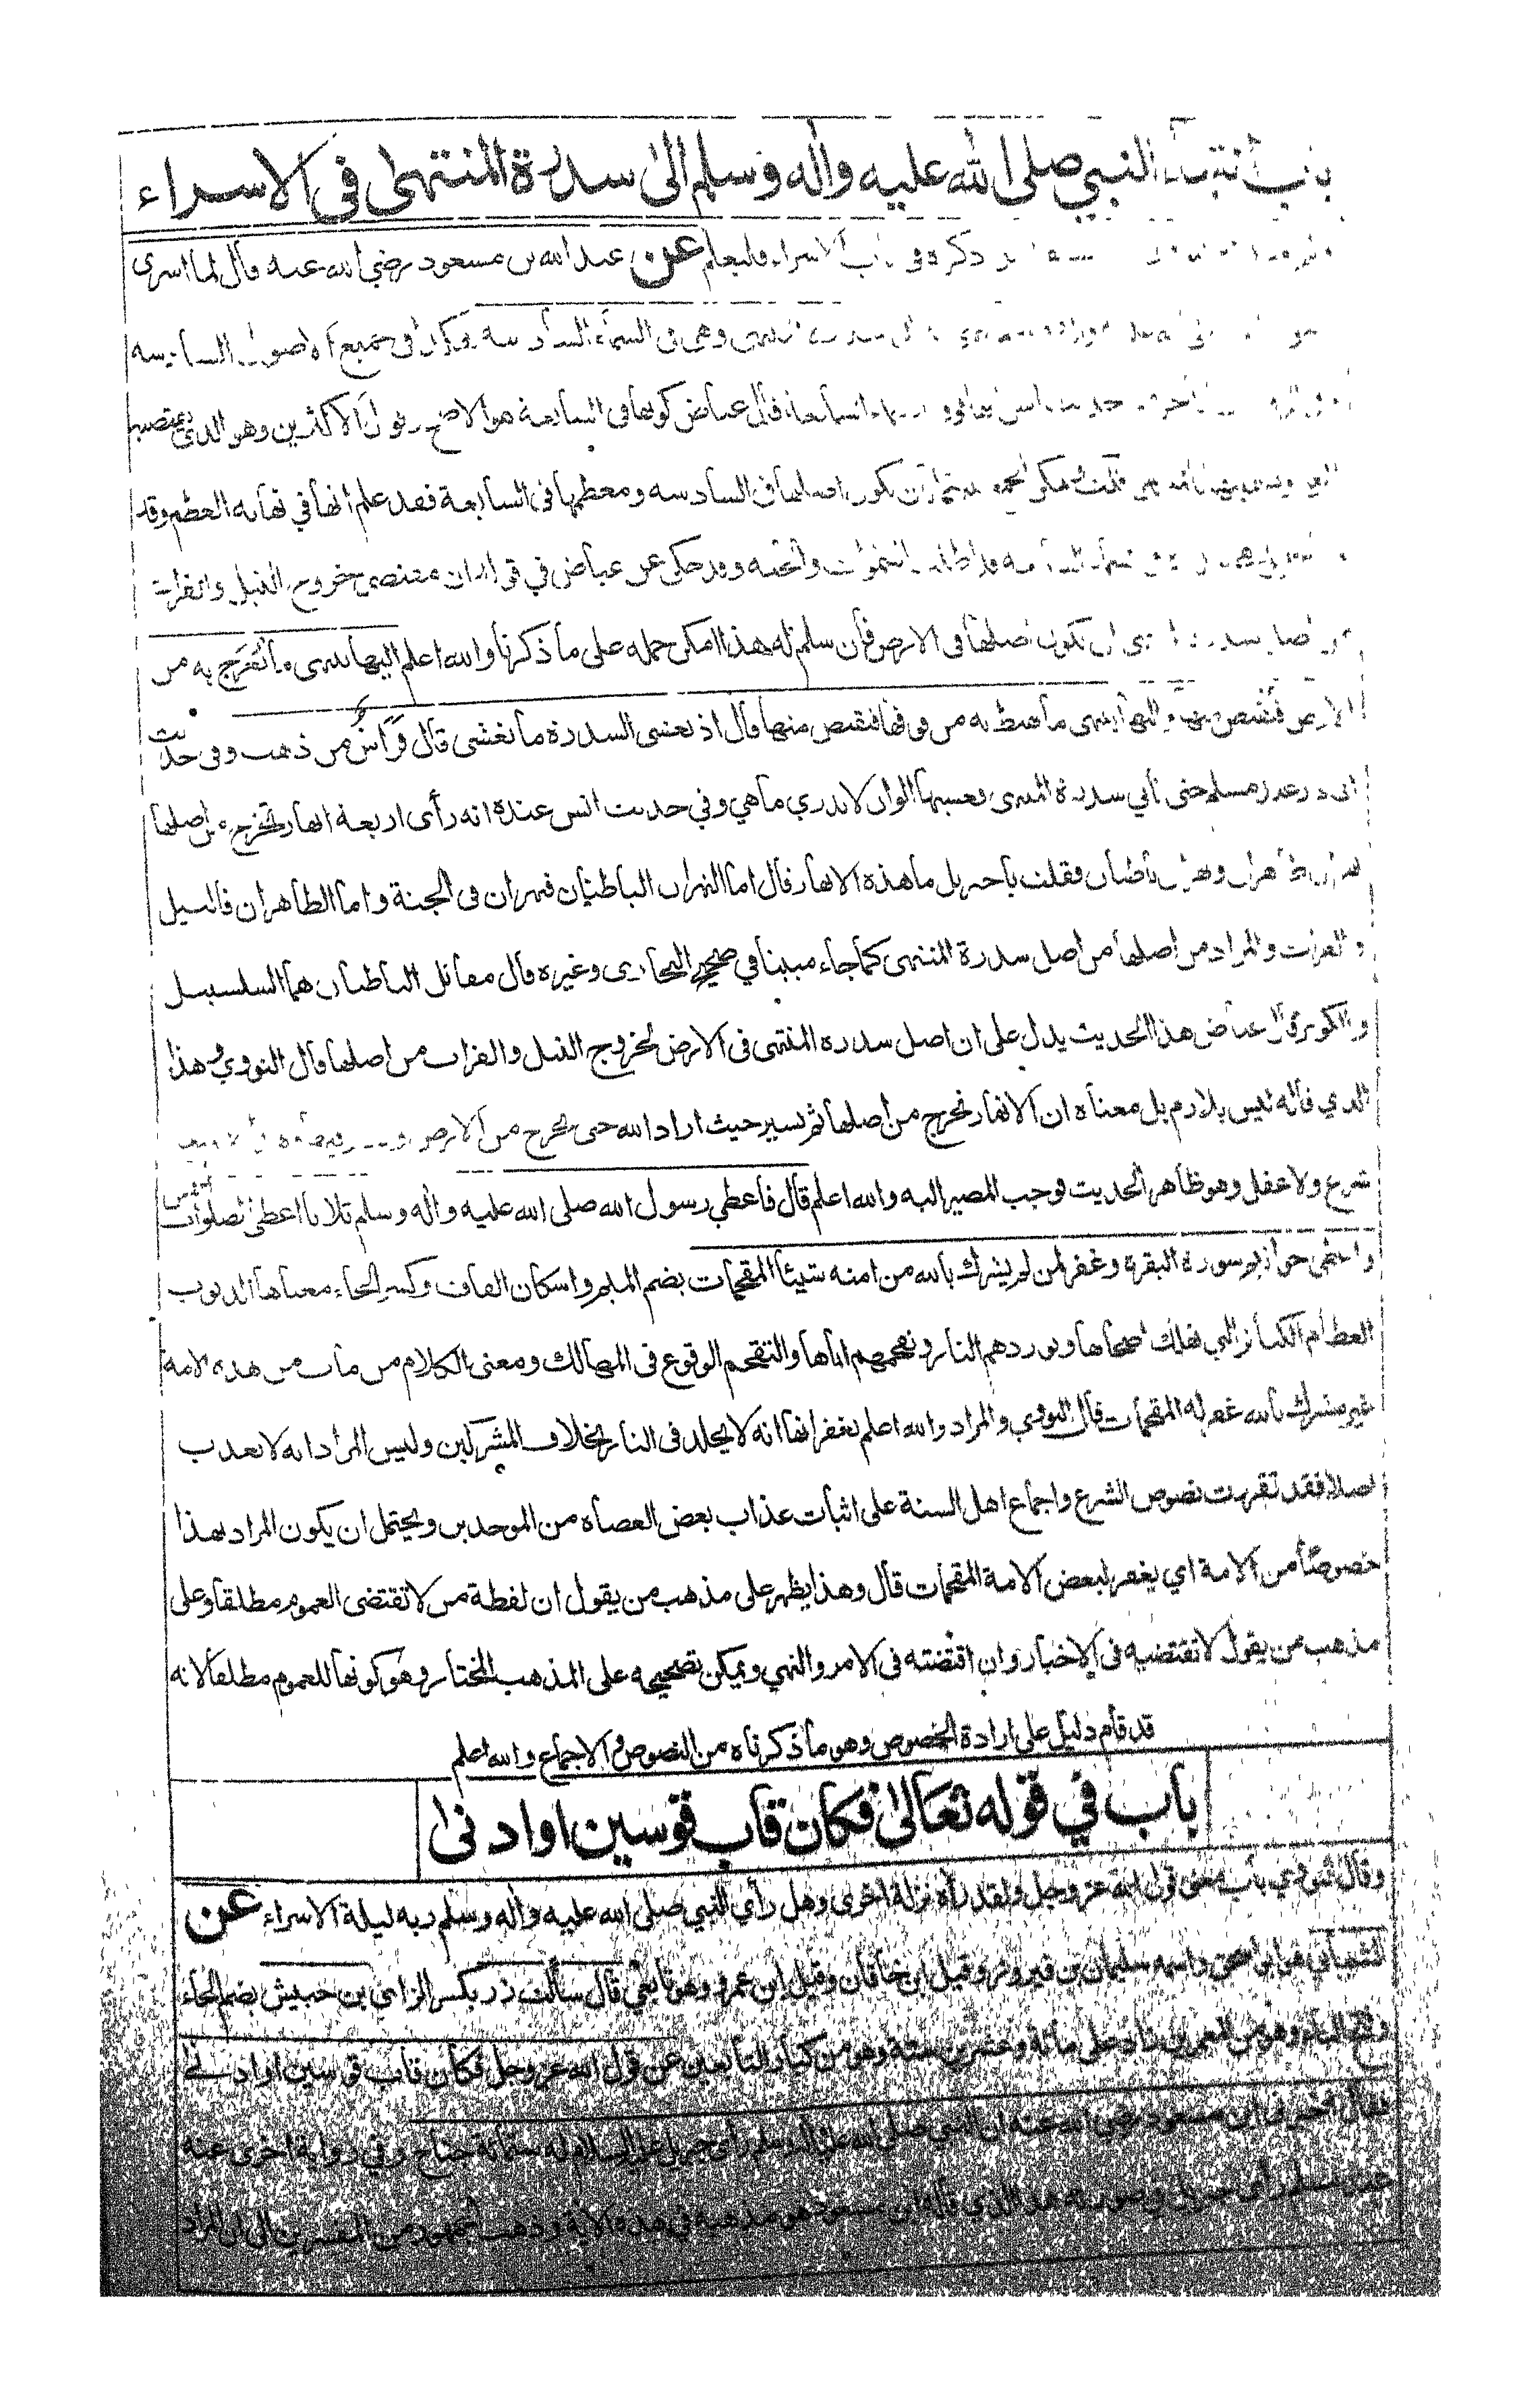 باب انتهاء النبي صلى الله عليه واله وسلم الى سدرة المنتهى فى الاسراء
ذكره في باب الاسراء فليعلم عن عبد الله بن مسعود رضي الله عنه قال لما اسرى
وهي فى السماء السادسة وكذا في جميع الاصول السادسة
حديث انس انها فوق السماء السابعة قال عياض كونها فى السابعة هو الاصح وقول الاكثرين وهو الذي يقتضيه
قلت يمكن الجمع بينهما بان يكون اصلها في السادسة ومعظمها فى السابعة فقد علم انها في نهاية العظم وقد
السموات والجنة وقد حكى عن عياض في قوله ان مقتضى خروج النيل والفرات
من اصل سدرة ان يكون اصلها فى الارض فان سلم له هذا امكن حمله على ما ذكرنا والله اعلم اليها ينتهى ما يعرج به من
الارض فيقبض منها واليها ينتهى ما يهبط به من فوقها فيقبض منها وقال اذ يغشى السدرة ما يغشى قال فراش من ذهب وفى حديث
ابى ذر عند مسلم حتى نأتي سدرة المنتهى فغشيها الوان لا ندري ما هي وفي حديث انس عنده انه رأى اربعة انهار تخرج من اصلها
نهران ظاهران ونهران باطنان فقلت يا جبريل ما هذه الانهار قال اما النهران الباطنان فنهران فى الجنة واما الظاهران فالنيل
والفرات والمراد من اصلها من اصل سدرة المنتهى كما جاء مبينا في صحيح البخارى وغيره قال مقاتل الباطنان هما السلسبيل
والكوثر قال عياض هذا الحديث يدل على ان اصل سدرة المنتهى فى الارض لخروج النيل والفرات من اصلها قال النووي وهذا
الذي قاله ليس بلازم بل معناه ان الانهار تخرج من اصلها ثم تسير حيث اراد الله حتى تخرج من الارض
شرع ولا عقل وهو ظاهر الحديث فوجب المصير اليه والله اعلم قال فاعطي رسول الله صلى الله عليه واله وسلم ثلاثا اعطى الصلوات الخمس
واعطى خواتيم سورة البقرة وغفر لمن لم يشرك بالله من امته شيئا المقحمات بضم الميم واسكان القاف وكسر الحاء معناها الذنوب
العظام الكبائر التي تهلك اصحابها وتوردهم النار وتقحمهم اياها والتقحم الوقوع فى المهالك ومعنى الكلام من مات من هذه الامة
غير مشرك بالله غفر له المقحمات قال النووي والمراد والله اعلم بغفرانها انه لا يخلد فى النار بخلاف المشركين وليس المراد انه لا يعذب
اصلا فقد تقررت نصوص الشرع واجماع اهل السنة على اثبات عذاب بعض العصاة من الموحدين ويحتمل ان يكون المراد بهذا
خصوصا من الامة اي يغفر لبعض الامة المقحمات قال وهذا يظهر على مذهب من يقول ان لفظة من لا تقتضى العموم مطلقا وعلى
مذهب من يقول لا تقتضيه فى الاخبار وان اقتضته فى الامر والنهي ويمكن تصحيحه على المذهب المختار وهو كونها للعموم مطلقا لانه
قد قام دليل على ارادة الخصوص وهو ما ذكرناه من النصوص والاجماع والله اعلم
باب في قوله تعالى فكان قاب قوسين او ادنى
وقال النووي باب معنى قول الله عز وجل ولقد رآه نزلة اخرى وهل رأى النبي صلى الله عليه واله وسلم ربه ليلة الاسراء عن
الشيباني هو ابو اسحق واسمه سليمان بن فيروز وقيل ابن خاقان وقيل ابن عمرو وهو تابعي قال سألت زر بكسر الزاي بن حبيش بضم الحاء
وفتح الباء وهو من المعمرين زاد على مائة وعشرين سنة وهو من كبار التابعين عن قول الله عز وجل فكان قاب قوسين او ادنى
فقال اخبرنى ابن مسعود رضي الله عنه ان النبي صلى الله عليه واله وسلم رأى جبريل عليه السلام له ستمائة جناح وفي رواية اخرى عنه
عند مسلم رأى جبريل في صورته هذا الذي قاله ابن مسعود هو مذهبه في هذه الاية وذهب الجمهور من المفسرين الى ان المراد